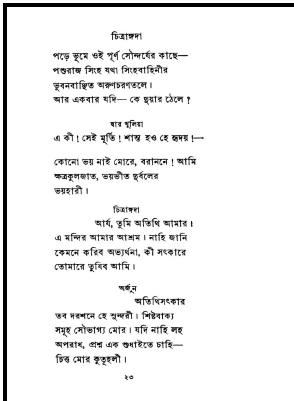 চিত্রাঙ্গদা
পড়ে ভূমে ওই পূর্ণ সৌন্দর্যের কাছে—
পশুরাজ সিংহ যথা সিংহবাহিনীর
ভুবনবাঞ্ছিত অরুণচরণতলে।
আর একবার যদি— কে দুয়ার ঠেলে?
দ্বার খুলিয়া
এ কী! সেই মূর্তি! শান্ত হও হে হৃদয়!—
কোনো ভয় নাই মোরে, বরাননে! আমি
ক্ষত্রকুলজাত, ভয়ভীত দুর্বলের
ভয়হারী।
চিত্রাঙ্গদা
আর্য, তুমি অতিথি আমার।
এ মন্দির আমার আশ্রম। নাহি জানি
কেমনে করিব অভ্যর্থনা, কী সৎকারে
তোমারে তুষিব আমি।
অর্জুন
অতিথিসৎকার
তব দরশনে হে সুন্দরী। শিষ্টবাক্য
সমূহ সৌভাগ্য মোর। যদি নাহি লহ
অপরাধ, প্রশ্ন এক শুধাইতে চাহি—
চিত্ত মোর কুতূহলী।
২৩